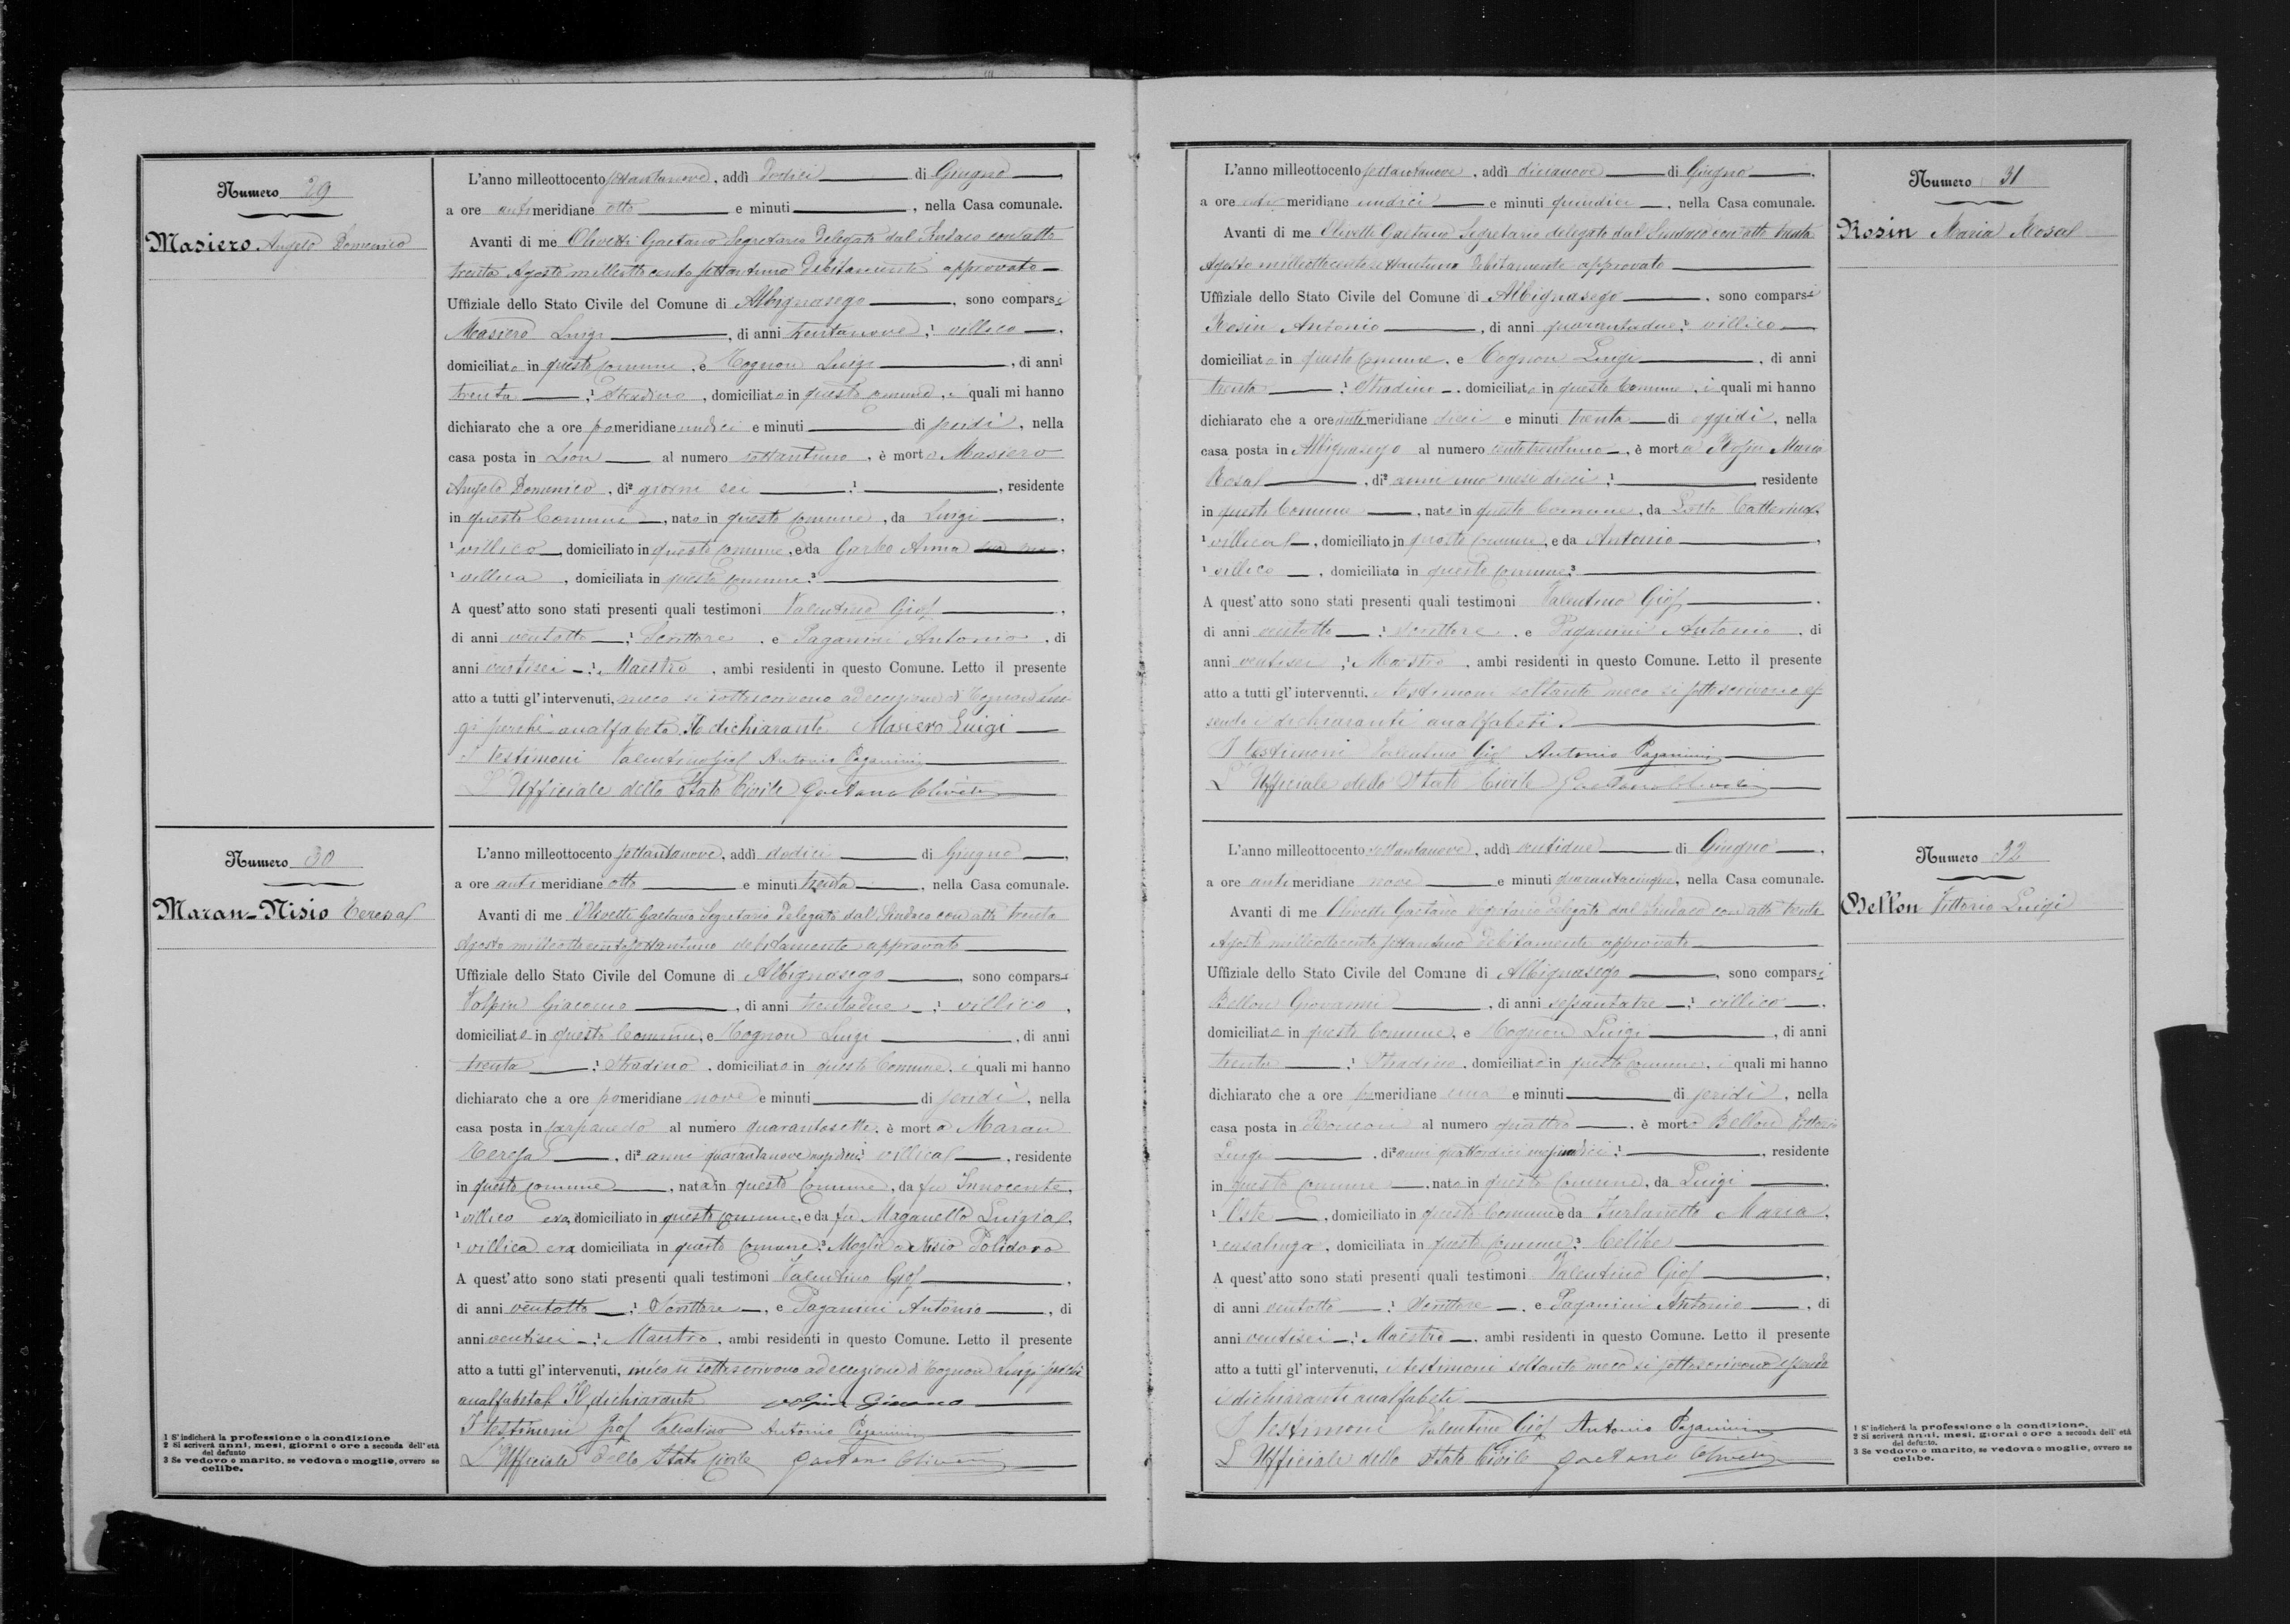 Numero 29
Masiero Angelo Domenico
L'anno milleottocento settantanove, addì dodici di Giugno,
a ore antimeridiane otto e minuti, nella Casa comunale.
Avanti di me Olivetti Gaetano Segretario delegato dal Sindaco con atto
trenta Agosto milleottocento settantuno debitamente approvato
Uffiziale dello Stato Civile del Comune di Albignasego, sono comparsi
Masiero Luigi, di anni trentanove, villico,
domiciliato in questo comune, e Tognon Luigi, di anni
trenta, Stradino, domiciliato in questo comune, i quali mi hanno
dichiarato che a ore pomeridiane undici e minuti di jeridì, nella
casa posta in Lion al numero settantuno, è morto Masiero
Angelo Domenico, di giorni sei, residente
in questo Comune, nato in questo comune, da Luigi,
villico, domiciliato in questo comune, e da Garbo Anna
villica, domiciliata in questo comune.
A quest'atto sono stati presenti quali testimoni Valentino Giof,
di anni ventotto, Scrittore, e Paganini Antonio, di
anni ventisei, Maestro, ambi residenti in questo Comune. Letto il presente
atto a tutti gl'intervenuti, meco si sottoscrivono ad eccezione di Tognon Lui-
gi perchè analfabeta. Il dichiarante Masiero Luigi
I Testimoni Valentino Giof Antonio Paganini
L'Ufficiale dello Stato Civile Gaetano Olivetti
Numero 30
Maran-Nisio Teresa
L'anno milleottocento settantanove, addì dodici di Giugno,
a ore antimeridiane otto e minuti trenta, nella Casa comunale.
Avanti di me Olivetti Gaetano Segretario delegato dal Sindaco con atto trenta
Agosto milleottocentosettantuno debitamente approvato
Uffiziale dello Stato Civile del Comune di Albignasego, sono comparsi
Volpin Giacomo, di anni trentadue, villico,
domiciliato in questo Comune, e Tognon Luigi, di anni
trenta, Stradino, domiciliato in questo Comune, i quali mi hanno
dichiarato che a ore pomeridiane nove e minuti di jeridì, nella
casa posta in Carpanedo al numero quarantasette, è morta Maran
Teresa, di anni quarantanove mesi dieci villica, residente
in questo comune, nata in questo Comune, da fu Innocente,
villico era, domiciliato in questo comune, e da fu Maganello Luigia,
villica era domiciliata in questo comune. Moglie a Nisio Polidoro
A quest'atto sono stati presenti quali testimoni Valentino Giof,
di anni ventotto, Scrittore, e Paganini Antonio, di
anni ventisei, Maestro, ambi residenti in questo Comune. Letto il presente
atto a tutti gl'intervenuti, meco si sottoscrivono ad eccezione di Tognon Luigi perchè
analfabeta. Il dichiarante Volpin Giacomo
I testimoni Giof Valentino Antonio Paganini
L'Ufficiale dello Stato Civile Gaetano Olivetti
1 S'indicherà la professione o la condizione
2 Si scriverà anni, mesi, giorni o ore a seconda dell'età
del defunto
3 Se vedovo o marito, se vedova o moglie, ovvero se
celibe.
L'anno milleottocento settantanove, addì diecianove di Giugno,
a ore antimeridiane undici e minuti quindici, nella Casa comunale.
Avanti di me Olivetti Gaetano Segretario delegato dal Sindaco con atto trenta
Agosto milleottocentosettantuno debitamente approvato
Uffiziale dello Stato Civile del Comune di Albignasego, sono comparsi
Rosin Antonio, di anni quarantadue, villico,
domiciliato in questo Comune, e Tognon Luigi, di anni
trenta, Stradino, domiciliato in questo Comune, i quali mi hanno
dichiarato che a ore antimeridiane dieci e minuti trenta di oggidì, nella
casa posta in Albignasego al numero centotrentuno, è morta Rosin Maria
Rosa, di anni uno mesi dieci, residente
in questo Comune, nata in questo Comune, da Catterina,
villica, domiciliato in questo comune, e da Antonio,
villico, domiciliata in questo comune.
A quest'atto sono stati presenti quali testimoni Valentino Giof,
di anni ventotto, scrittore, e Paganini Antonio, di
anni ventisei, Maestro, ambi residenti in questo Comune. Letto il presente
atto a tutti gl'intervenuti, i testimoni soltanto meco si sottoscrivono es-
sendo i dichiaranti analfabeti.
I testimoni Valentino Giof Antonio Paganini
L'Ufficiale dello Stato Civile Gaetano Olivetti
Numero 31
Rosin Maria Rosa
L'anno milleottocento settantanove, addì ventidue di Giugno,
a ore antimeridiane nove e minuti quarantacinque, nella Casa comunale.
Avanti di me Olivetti Gaetano Segretario delegato dal Sindaco con atto trenta
Agosto milleottocento settantuno debitamente approvato
Uffiziale dello Stato Civile del Comune di Albignasego, sono comparsi
Bellon Giovanni, di anni sessantatre, villico,
domiciliato in questo Comune, e Tognon Luigi, di anni
trenta, Stradino, domiciliato in questo Comune, i quali mi hanno
dichiarato che a ore pomeridiane una e minuti di jeridì, nella
casa posta in Roncon al numero quattro, è morto Bellon Vittorio
Luigi, di anni quattordici mesi, residente
in questo comune, nato in questo Comune, da Luigi,
Oste, domiciliato in questo Comune e da Furlanetto Maria,
casalinga, domiciliata in questo comune. Celibe
A quest'atto sono stati presenti quali testimoni Valentino Giof,
di anni ventotto, Scrittore, e Paganini Antonio, di
anni ventisei, Maestro, ambi residenti in questo Comune. Letto il presente
atto a tutti gl'intervenuti, i testimoni soltanto meco si sottoscrivono essendo
i dichiaranti analfabeti
I Testimoni Valentino Giof Antonio Paganini
L'Ufficiale dello Stato Civile Gaetano Olivetti
Numero 32
Bellon Vittorio Luigi
1 S'indicherà la professione o la condizione.
2 Si scriverà anni, mesi, giorni o ore a seconda dell'età
del defunto.
3 Se vedovo o marito, se vedova o moglie, ovvero se
celibe.